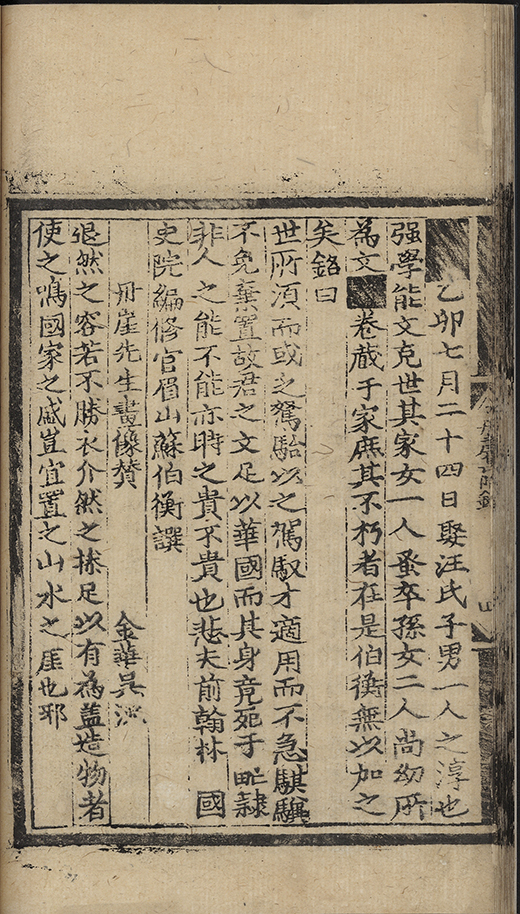 乙卯七月二十四日娶汪氏子男一人之淳也
强學能文克世其家女一人蚤卒孫女二人尚幼所
為文 卷蔵于家庶其不朽者在是伯衡無以加之
矣銘曰
世所須而或之駑駘以之駕馭才適用而不急騏驥
不免棄置故君之文足以華國而其身竟死于甿隷
非人之能不能亦時之貴不貴也悲夫前翰林 國
史院編修官眉山蘇伯衡譔
丹崖先生畫像賛 金華吳
退然之容若不勝衣介然之操足以有為盖造物者
使之鳴國家之盛豈宜置之山水之厓也耶
四